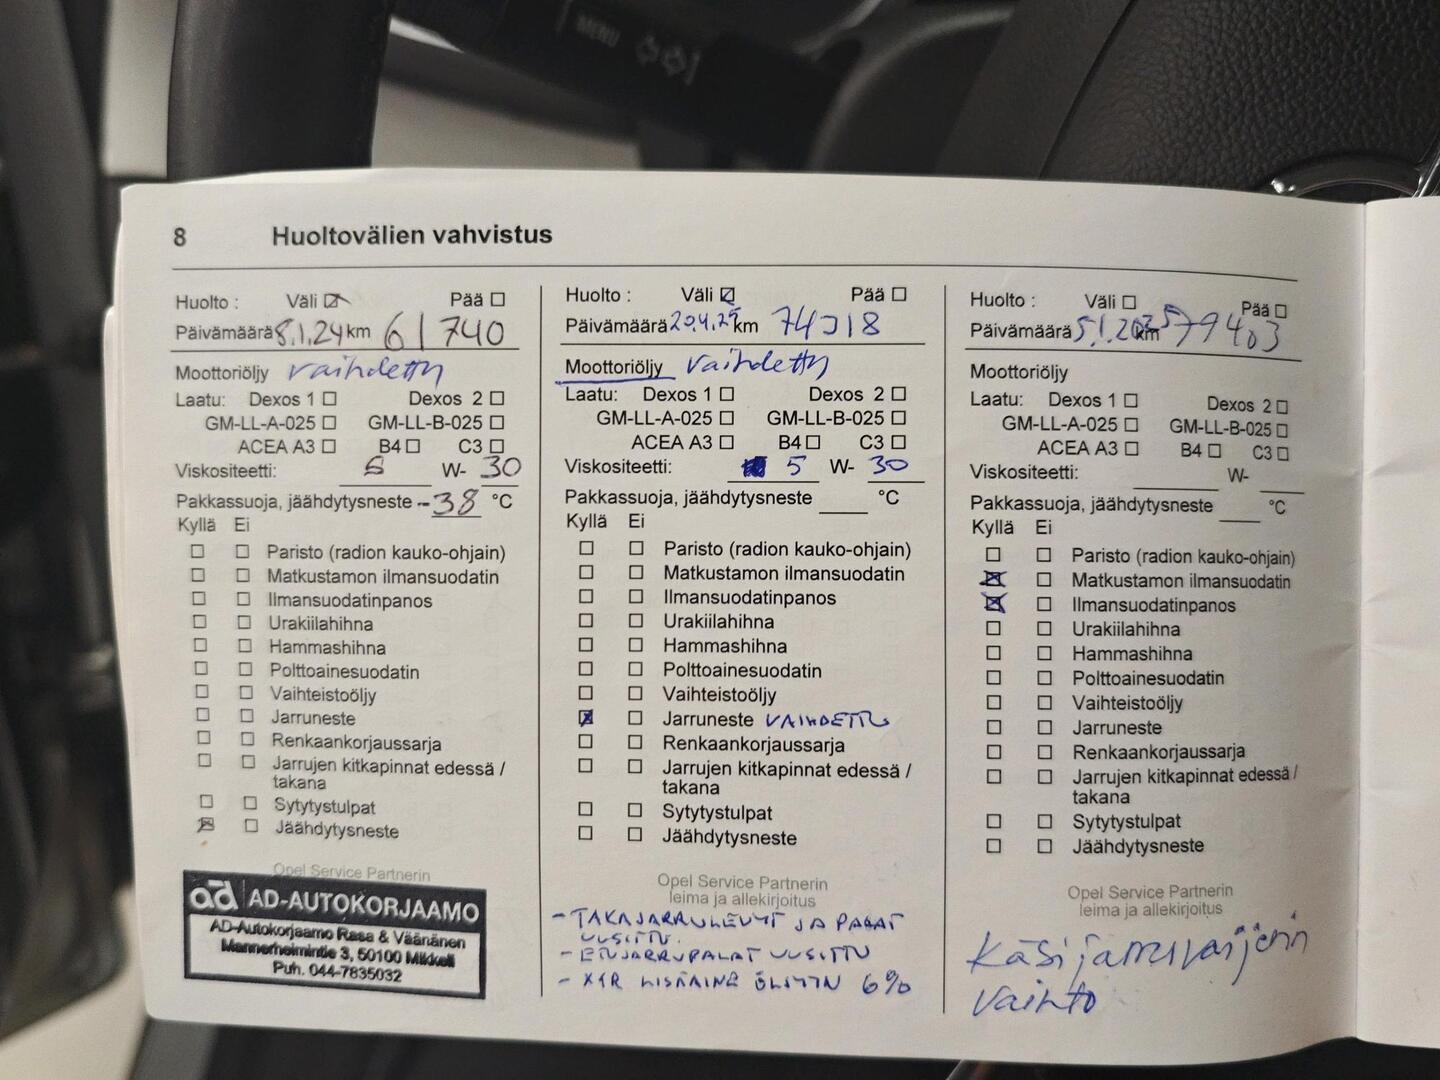 MENU
8 Huoltovälien vahvistus
Huolto : Väli Pää
Päivämäärä 8.1.24 km 61740
Moottoriöljy vaihdettu
Laatu: Dexos 1 Dexos 2
GM-LL-A-025 GM-LL-B-025
ACEA A3 B4 C3
Viskositeetti: 5 W- 30
Pakkassuoja, jäähdytysneste -38 °C
Kyllä Ei
Paristo (radion kauko-ohjain)
Matkustamon ilmansuodatin
Ilmansuodatinpanos
Urakiilahihna
Hammashihna
Polttoainesuodatin
Vaihteistoöljy
Jarruneste
Renkaankorjaussarja
Jarrujen kitkapinnat edessä /
takana
Sytytystulpat
Jäähdytysneste
Opel Service Partnerin
ad AD-AUTOKORJAAMO
AD-Autokorjaamo Rasa & Väänänen
Mannerheimintie 3, 50100 Mikkeli
Puh. 044-7835032
Huolto : Väli Pää
Päivämäärä 20.4.25 km
Moottoriöljy vaihdettu
Laatu: Dexos 1 Dexos 2
GM-LL-A-025 GM-LL-B-025
ACEA A3 B4 C3
Viskositeetti: 5 W- 30
Pakkassuoja, jäähdytysneste °C
Kyllä Ei
Paristo (radion kauko-ohjain)
Matkustamon ilmansuodatin
Ilmansuodatinpanos
Urakiilahihna
Hammashihna
Polttoainesuodatin
Vaihteistoöljy
Jarruneste VAIHDETTU
Renkaankorjaussarja
Jarrujen kitkapinnat edessä /
takana
Sytytystulpat
Jäähdytysneste
Opel Service Partnerin
leima ja allekirjoitus
- TAKAJARRULEVYT JA PALAT
UUSITTU.
- ETUJARRUPALAT UUSITTU
- X1R LISÄAINE ÖLJYYN 6%
Huolto : Väli Pää
Päivämäärä km 79403
Moottoriöljy
Laatu: Dexos 1 Dexos 2
GM-LL-A-025 GM-LL-B-025
ACEA A3 B4 C3
Viskositeetti: W-
Pakkassuoja, jäähdytysneste °C
Kyllä Ei
Paristo (radion kauko-ohjain)
Matkustamon ilmansuodatin
Ilmansuodatinpanos
Urakiilahihna
Hammashihna
Polttoainesuodatin
Vaihteistoöljy
Jarruneste
Renkaankorjaussarja
Jarrujen kitkapinnat edessä /
takana
Sytytystulpat
Jäähdytysneste
Opel Service Partnerin
leima ja allekirjoitus
Käsijarruvaijerin
vaihto